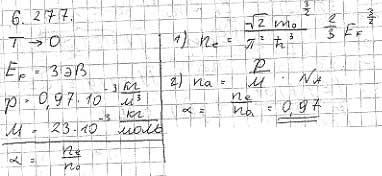 6.277.
T → 0
E_F = 3 эВ
ρ = 0,97·10⁻³ кг/м³
M = 23·10⁻³ кг/моль
α = n_e/n_a
1) n_e = √2 m_0^(3/2) / π² ħ³ · 2/3 E_F^(3/2)
2) n_a = ρ/M · N_A
α = n_e/n_a = 0,97